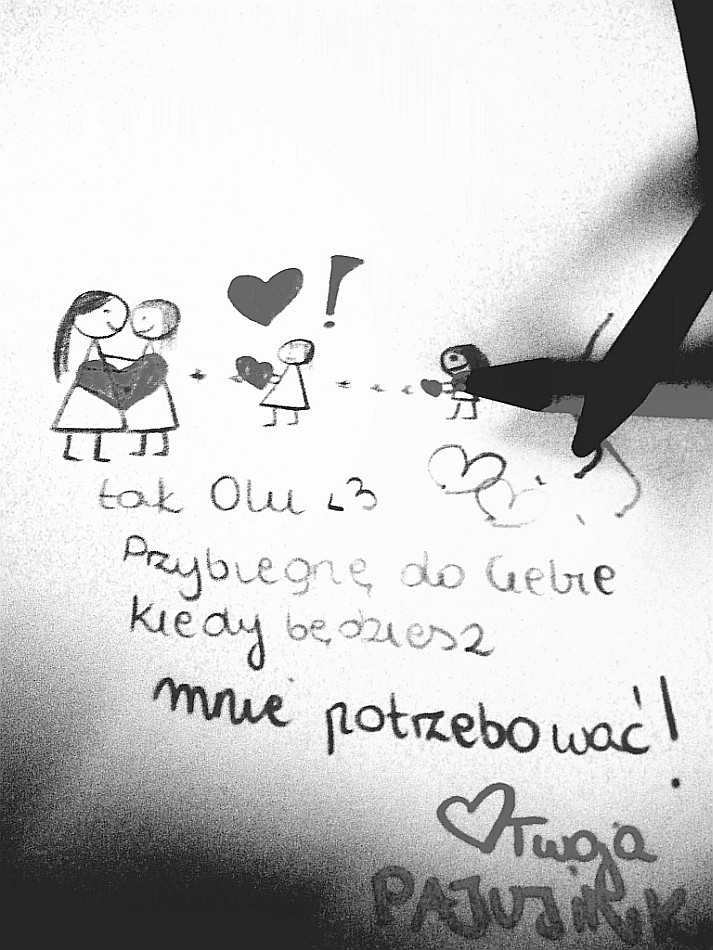 tak Olu <3
Przybiegnę do Ciebie
kiedy będziesz
mnie potrzebować!
Twoja